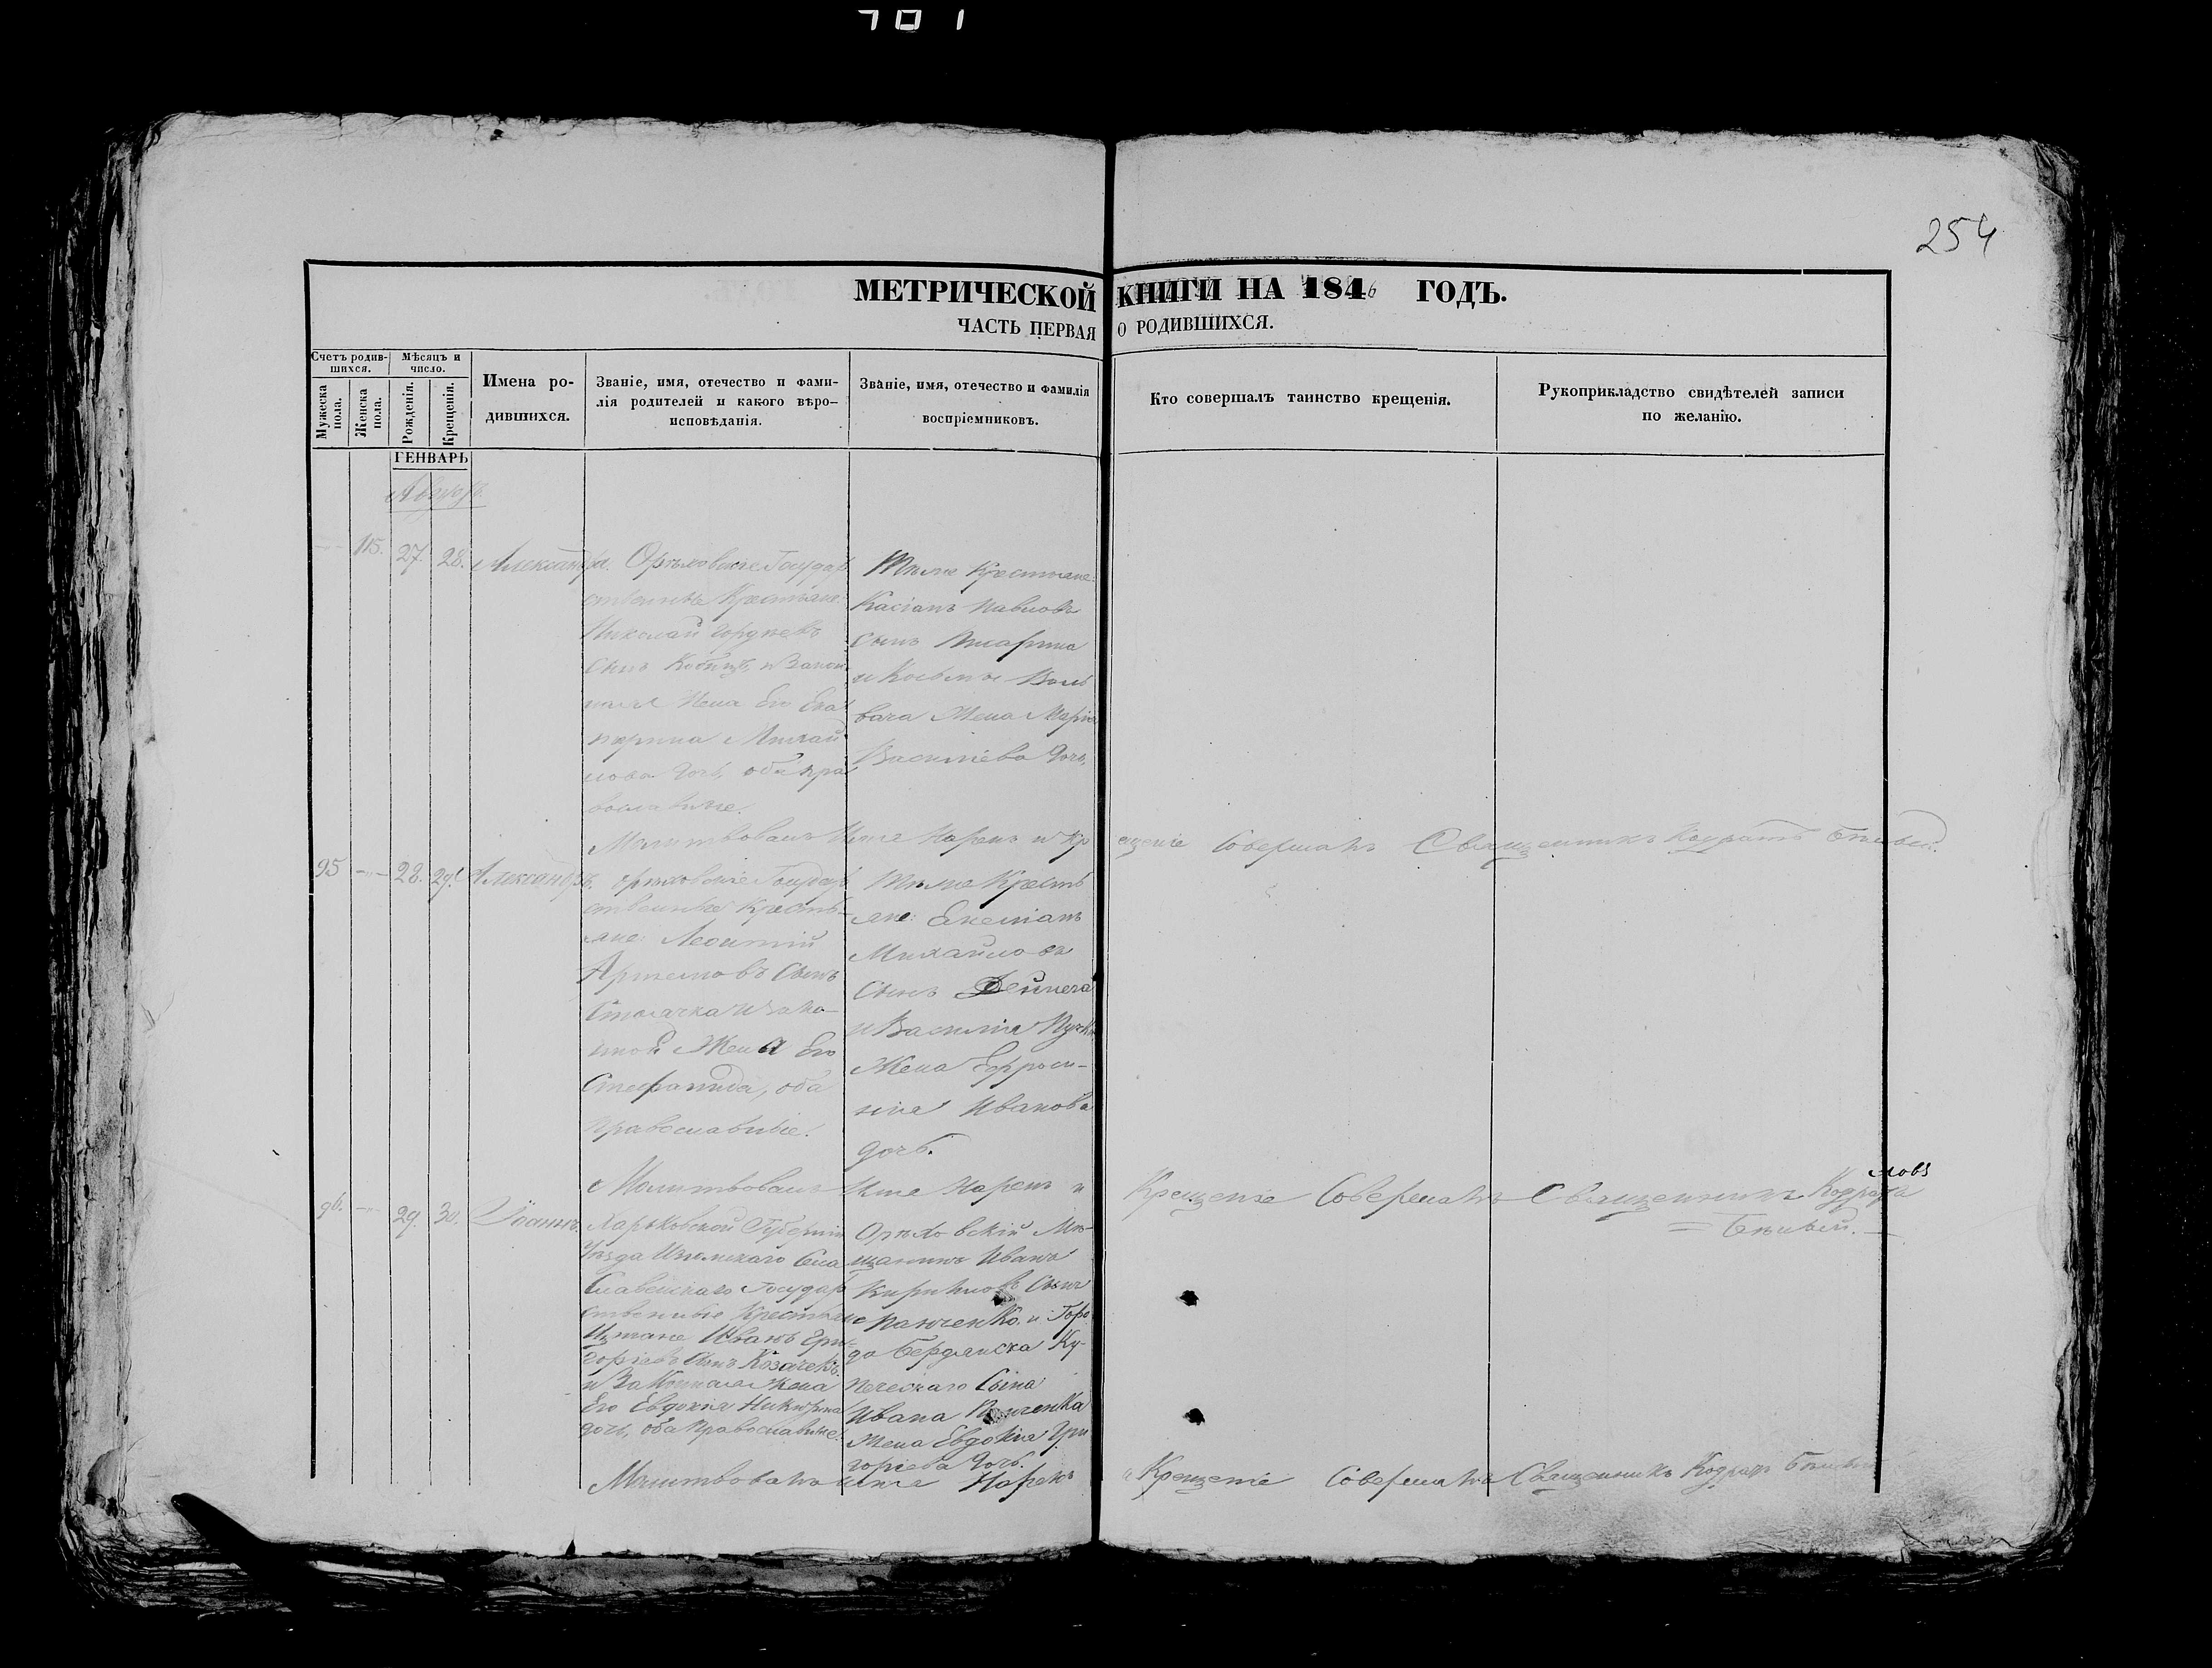 701
254
МЕТРИЧЕСКОЙ КНИГИ НА 1846 ГОДЪ.
ЧАСТЬ ПЕРВАЯ О РОДИВШИХСЯ.
Счетъ родив-
шихся.
Мужеска пола.
Женска пола.
Мѣсяцъ и
число.
Рожденія.
Крещенія.
Имена ро-
дившихся.
Званіе, имя, отечество и фами-
лія родителей и какого вѣро-
исповѣданія.
Званіе, имя, отечество и фамилія
воспріемниковъ.
Кто совершалъ таинство крещенія.
Рукоприкладство свидѣтелей записи
по желанію.
ГЕНВАРЬ
Августъ
115. 27. 28. Александра.
Орѣховскіе Государ
ственные Крестьяне
Николай Гордѣевъ
Сынъ и Закон
ная Жена Его Ека
терина Михай
лова дочь, оба пра
вославные.
Тѣже Крестьяне:
Касіанъ Павловъ
Сынъ
и Косьмы
Жена Марія
Василіева дочь,
Молитвовалъ Имя Нарекъ и Кр
ещеніе Совершалъ Священникъ Кодратъ
95 28. 29. Александръ.
Орѣховскіе Государ
ственные Кресть-
яне: Леонтій
Артемовъ Сынъ
и зако-
ной Жена Его
Стефанида, оба
Православные.
Тѣже Кресть
яне: Емеліанъ
Михайловъ
Сынъ Дейнега
и Василія
Жена Ефроси-
нія Иванова
дочь.
Молитвовалъ Имя Нарекъ и
Крещеніе Совершалъ Священникъ
ловъ
96. 29. 30. Іоаннъ.
Харьковской Губерніи
Уѣзда Изюмскаго Села
Славенскаго Государ
ственные Крестьяне
Иванъ Гри-
горіевъ Сынъ Козаченъ
и Законная Жена
Его Евдокія Никитина
дочь, оба Православные.
Орѣховскій Мѣ-
щанинъ Иванъ
Кирилловъ Сынъ
Панченко, и Горо
да Бердянска Ку-
печескаго Сына
Ивана
Жена Евдокія Гри
горіева дочь.
Молитвовалъ Имя Нарекъ
и Крещеніе Совершалъ Священникъ Кодратъ